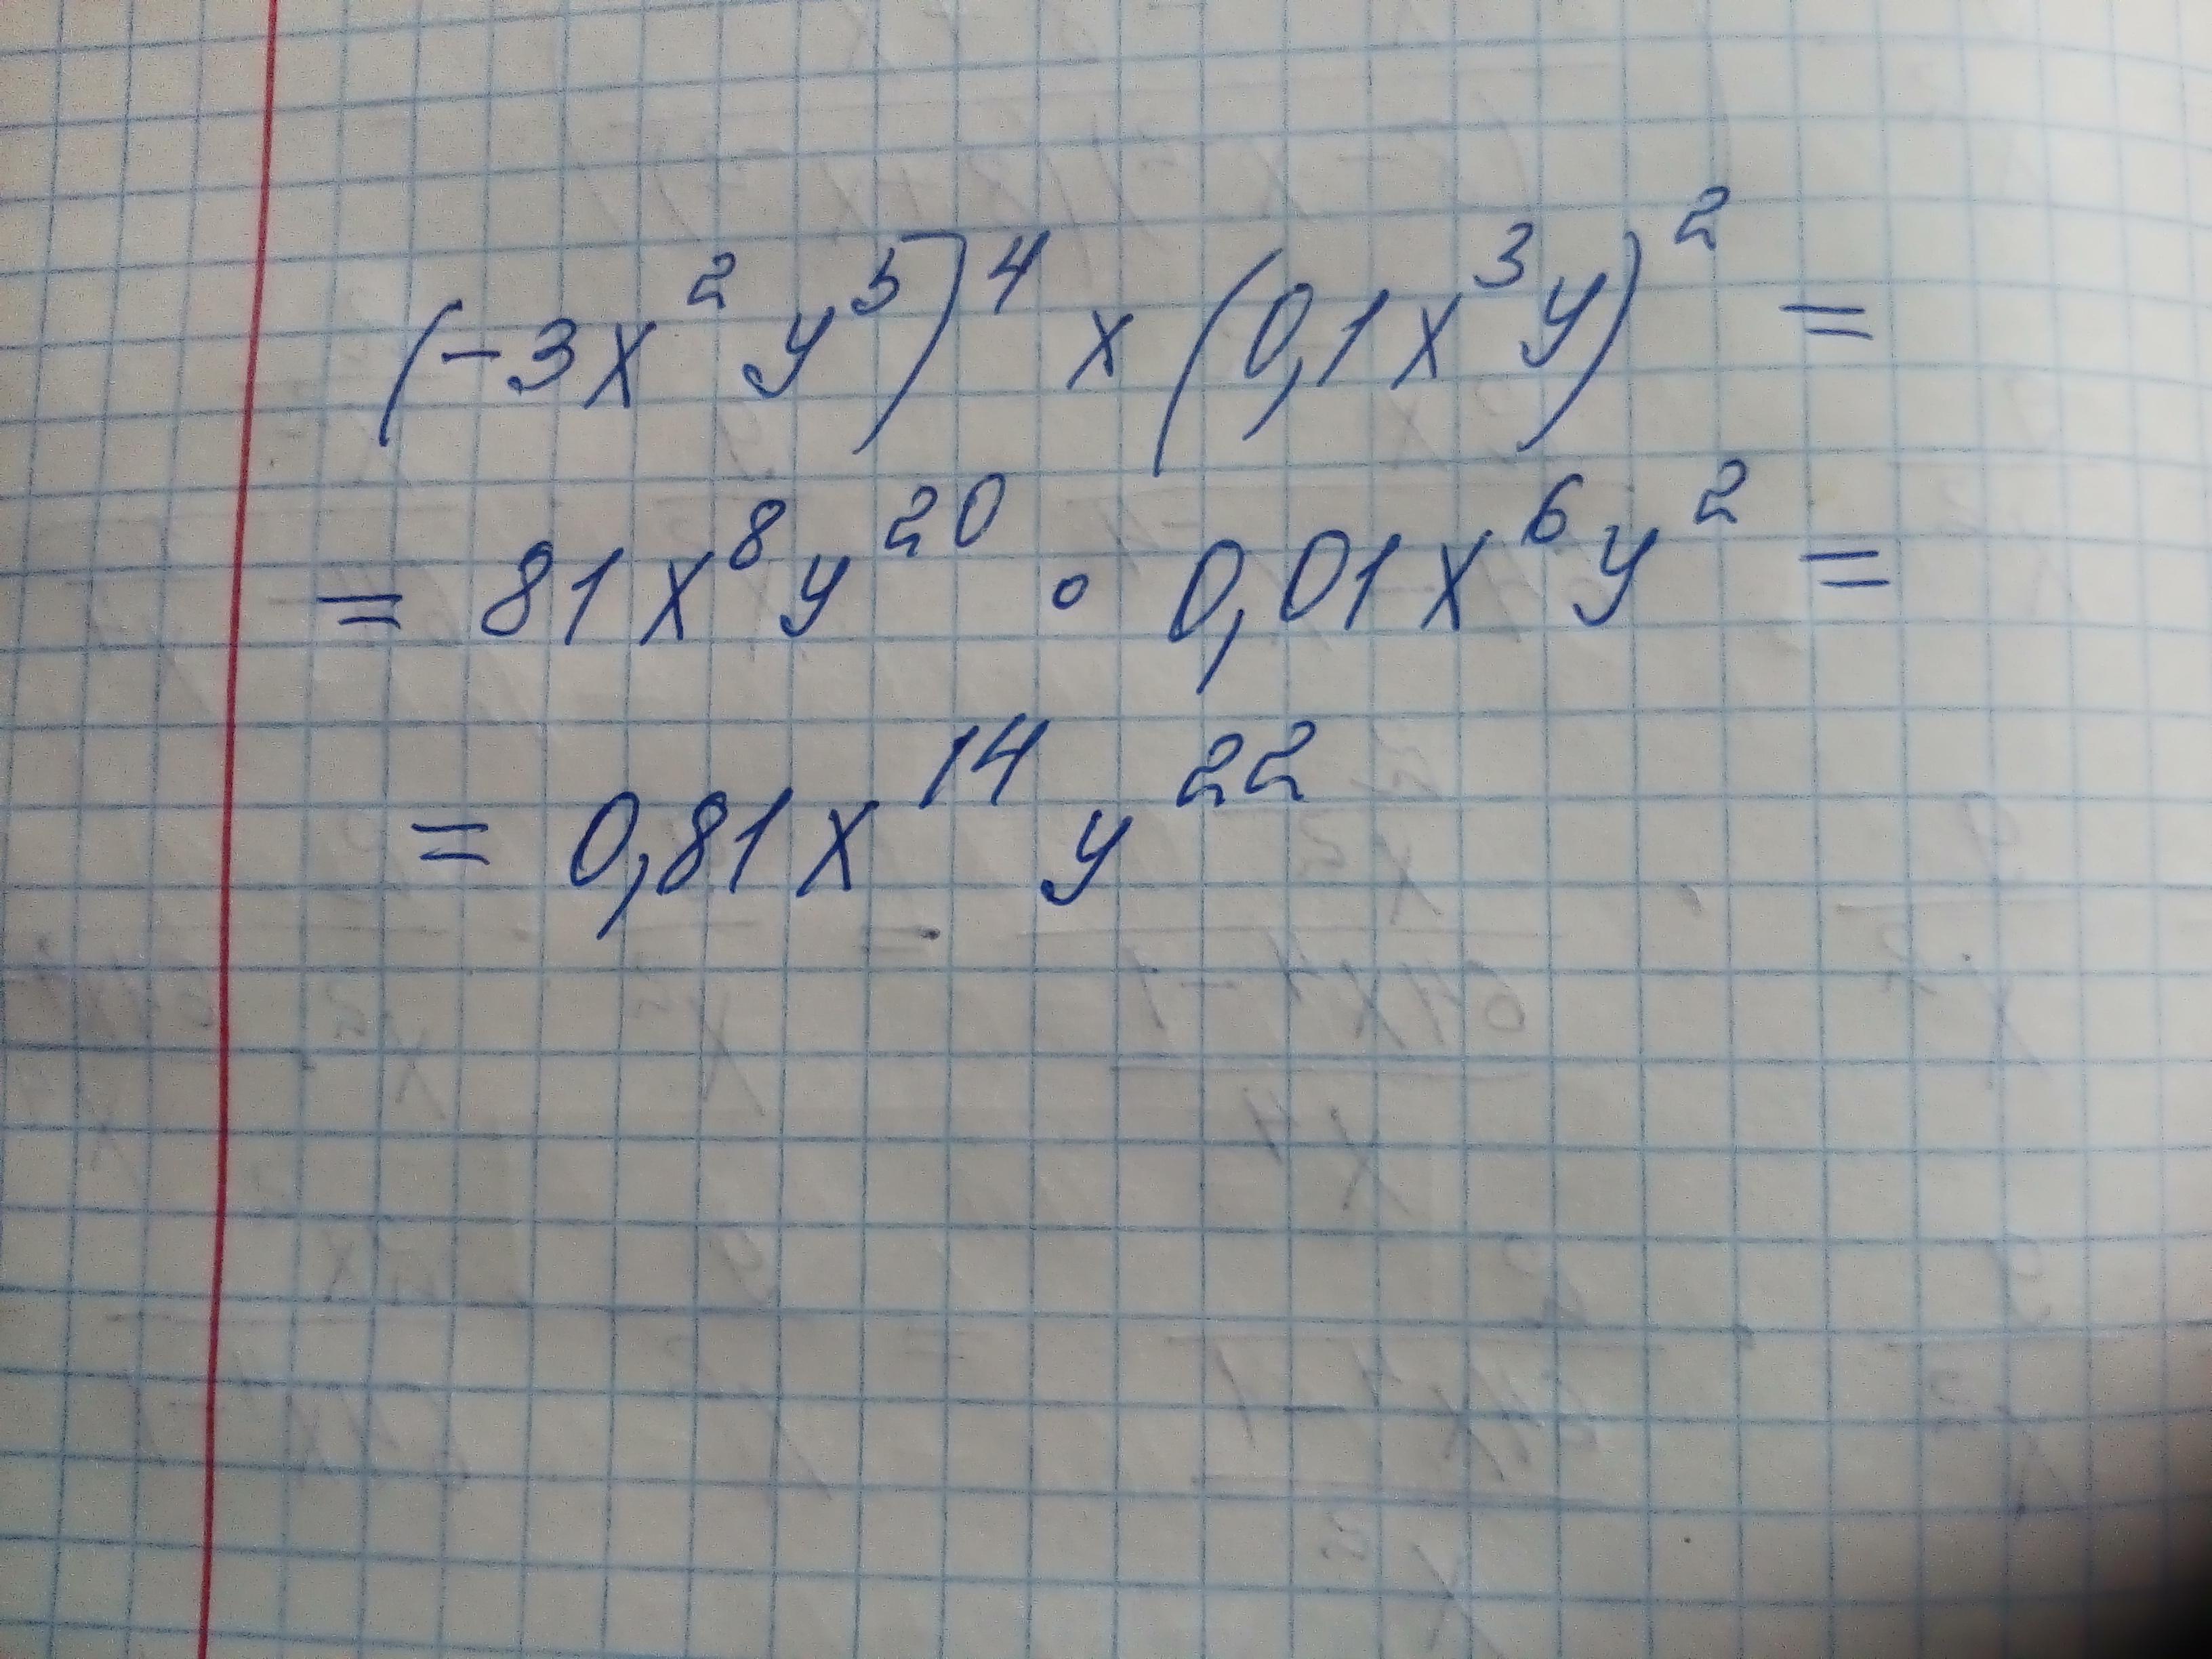 (-3x²y⁵)⁴ x (0,1x³y)² =
= 81x⁸y²⁰ ∘ 0,01x⁶y² =
= 0,81x¹⁴y²²